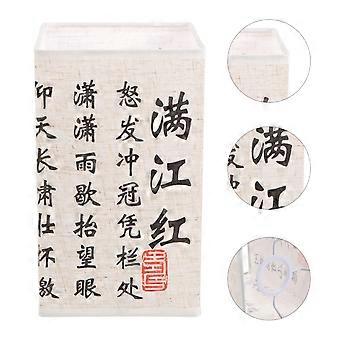 满江红
怒发冲冠凭栏处
潇潇雨歇抬望眼
仰天长啸壮怀激
满江
发冲